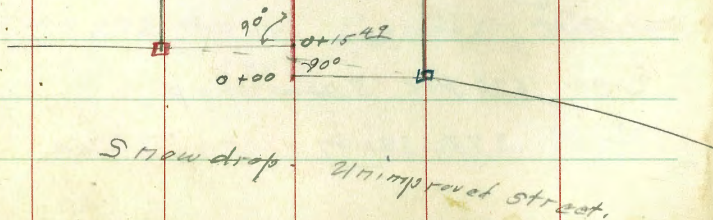 90°
0+15 49
90°
0+00
Snowdrop - Unimproved Street.